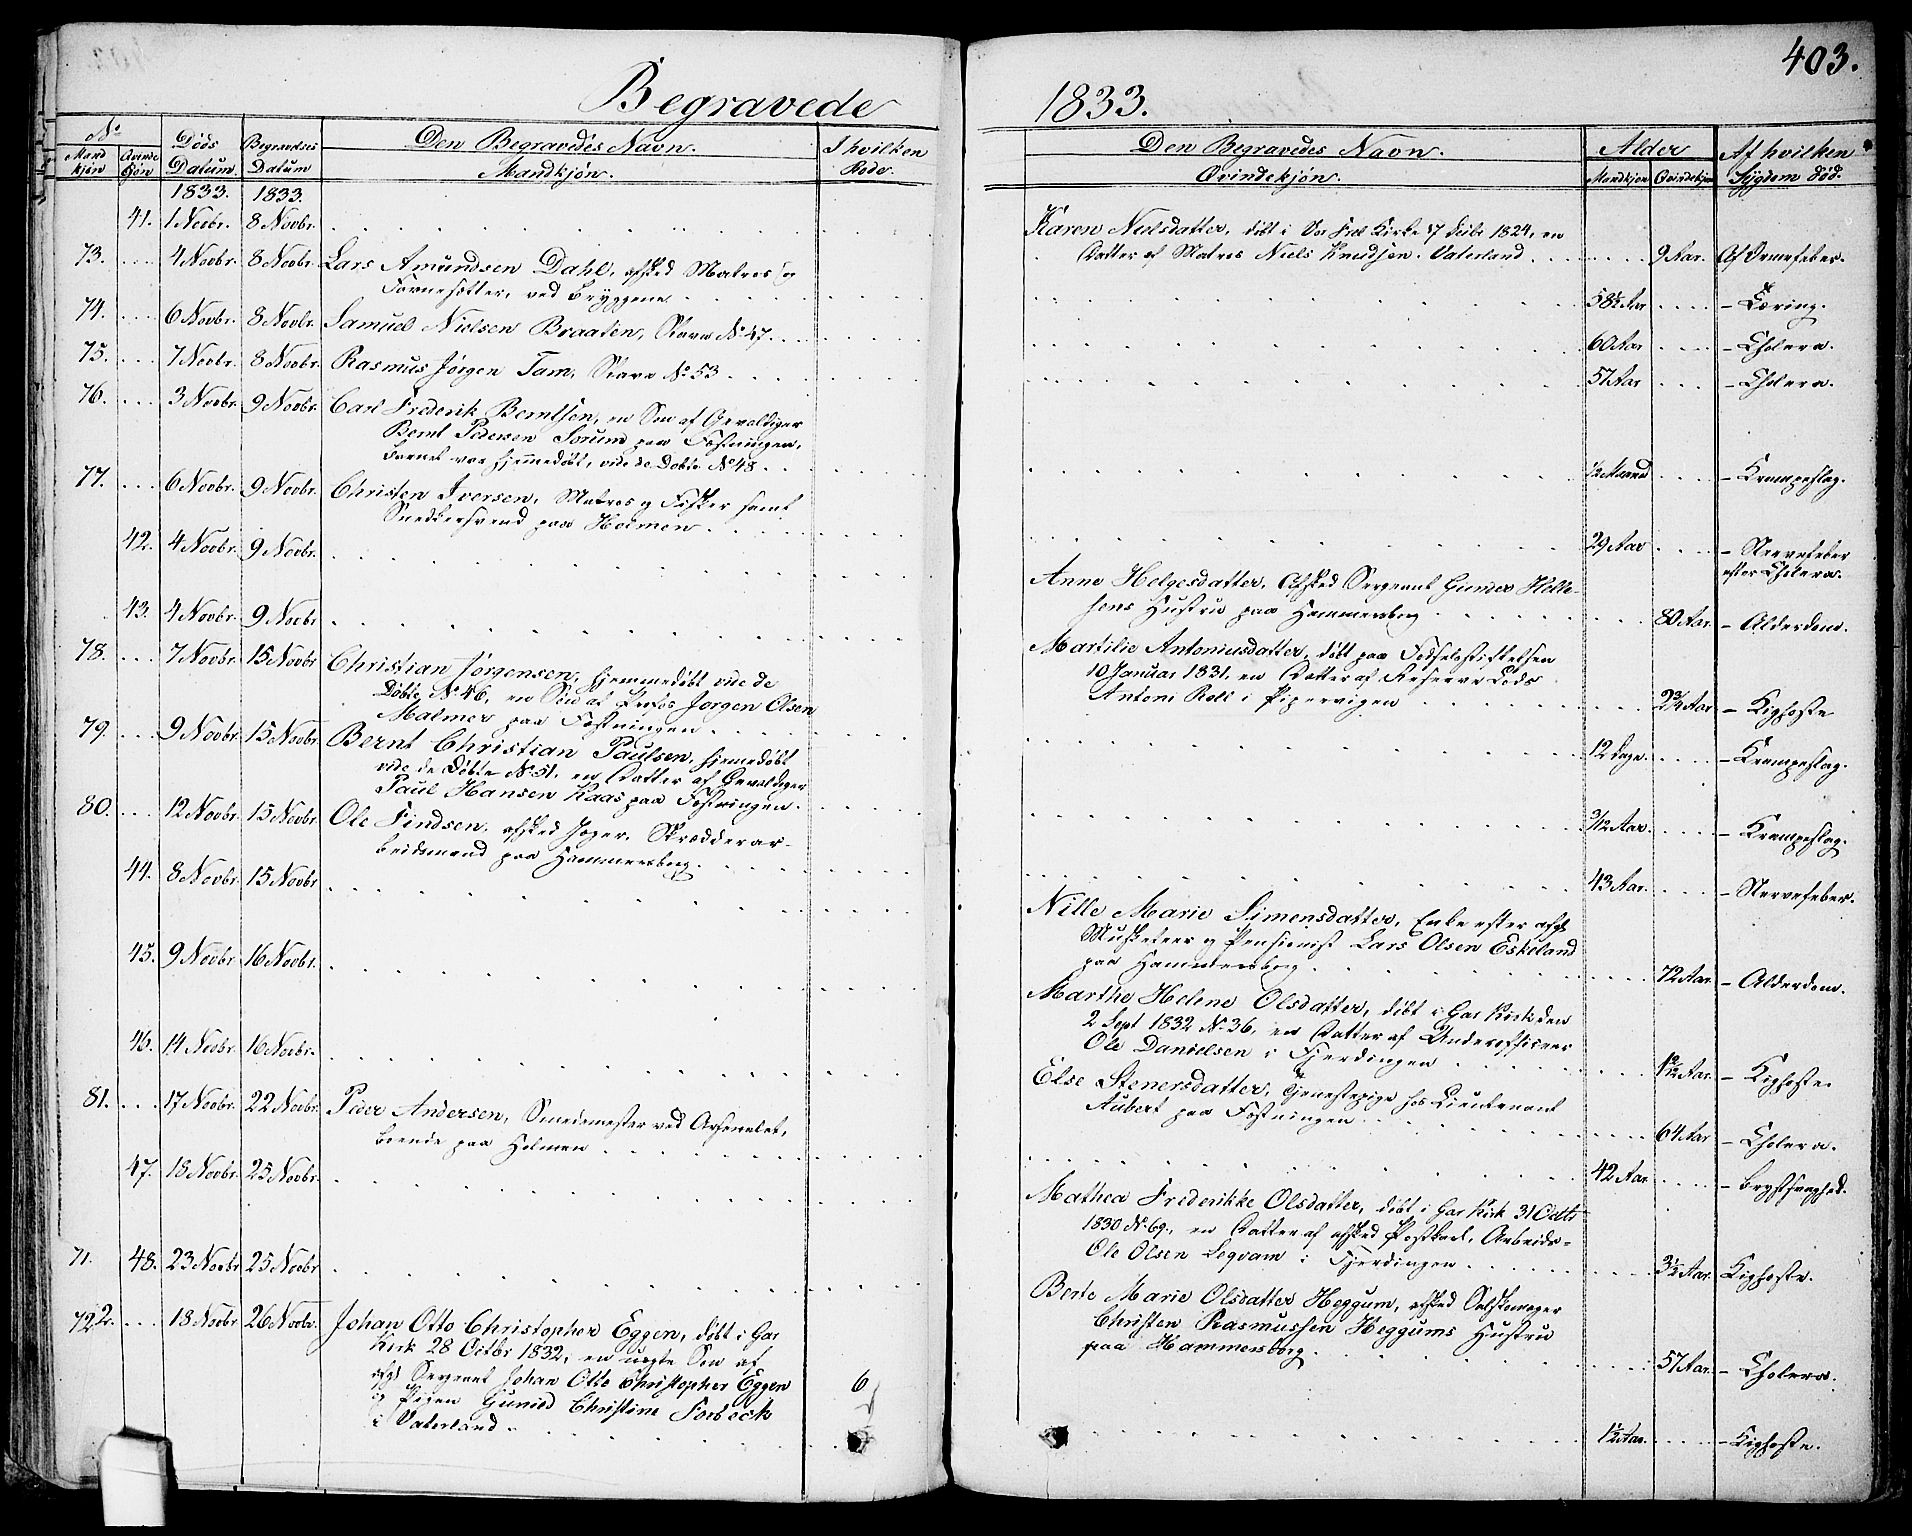 403.
Begravede
1833.
No
Mandkjøn
Qvindekjøn
Døds Datum.
Begravelses Datum
Den Begravedes Navn.
Mandkjøn.
I hvilken Rode.
Den Begravedes Navn.
Qvindekjøn.
Alder
Mandkjøn
Qvindekjøn
Af hvilken
Sygdom død.
1833. 1833.
41. 1 Novbr. 8 Novbr.
Karen Nielsdatter, døbt i Vor Frels Kirke 17 Decbr 1824, en
Datter af Matros Niels Knudsen. Vaterland 9 Aar. Af Ormefeber.
73. 4 Novbr. 8 Novbr. Lars Amundsen Dahl, afsked Matros og
ved Bryggene 58½ Aar – Tæring.
74. 6 Novbr. 8 Novbr. Samuel Nielsen Braaten, Slave No 47. 60 Aar – Cholera.
75. 7 Novbr. 8 Novbr. Rasmus Jørgen Tam, Slave No 53 57 Aar – Cholera.
76. 3 Novbr. 9 Novbr. Carl Frederik Berntsen, en Søn af Gevaldiger
Bernt Pedersen Sorum paa Fæstningen,
Barnet var hjemmedøbt, vide de Døbte No 48 ½ Maaned – Krampeslag.
77. 6 Novbr. 9 Novbr. Christen Iversen, Matros og Fisker samt
Snedkersvend paa Holmen 29 Aar – Nervefeber
efter Cholera.
42. 4 Novbr. 9 Novbr.
Anne Helgesdatter, Afsked Sergeant Gunder Helle-
sens Hustru paa Hammersborg 80 Aar – Alderdom.
43. 4 Novbr. 9 Novbr
Martilie Antoniusdatter, døbt paa Fødselsstiftelsen
10 Januar 1831, en Datter af Reserve Lods
Antoni Roll i Pipervigen 2¾ Aar – Kighoste
78. 7 Novbr. 15 Novbr Christian Jørgensen, hjemmedøbt vide de
Døbte No 46, en Søn af Profos Jørgen Olsen
Malmer paa Fæstningen 12 Dage. – Krampeslag.
79. 9 Novbr. 15 Novbr. Bernt Christian Paulsen, hjemedøbt
vide de Døbte No 51, en Datter af Gevaldiger
Paul Hansen Kaas paa Fæstningen. 3/12 Aar. – Krampeslag.
80. 12 Novbr. 15 Novbr. Ole Findsen, afsked Jæger, Skrædderar-
beidsmand paa Hammersborg. 43 Aar. – Nervefeber.
44. 8 Novbr. 15 Novbr
Nille Marie Simensdatter, Enke efter afg.
Musketeer og Pensionist Lars Olsen Eskeland
paa Hammersborg 72 Aar – Alderdom.
45. 9 Novbr. 16 Novbr.
Marthe Helene Olsdatter, døbt i Gar Kirk den
2 Sept 1832 No 36, en Datter af Underofficeer
Ole Danielsen i Fjerdingen Aar. – Kighoste.
46. 14 Novbr. 16 Novbr.
Else Stenersdatter, Tjenestepige hos Lieutenant
Aubert paa Fæstningen 64 Aar – Cholera.
81. 17 Novbr. 22 Novbr. Peder Andersen, Smedemester ved Arsenalet,
boende paa Holmen 42 Aar. – Brystsvaghed.
47. 18 Novbr. 25 Novbr.
Mathea Frederikke Olsdatter, døbt i Gar Kirk 31 Octbr
1830 No 69, en Datter af afsked Postkarl, Arbeids-
Ole Olsen Legvam i Fjerdingen 3½ Aar. Kighoste.
71. 48. 23 Novbr 25 Novbr
Berte Marie Olsdatter Heggum, afsked
Christen Rasmussen Heggums Hustru
paa Hammersborg 57 Aar. – Cholera.
72 18 Novbr 26 Novbr. Johan Otto Christopher Eggen, døbt i Gar
Kirk 28 Octbr 1832, en uægte Søn af
afg. Sergeant Johan Otto Christopher Eggen
og Pigen Gunild Christine Forbeck
i Vaterland 6 Aar. – Kighoste.